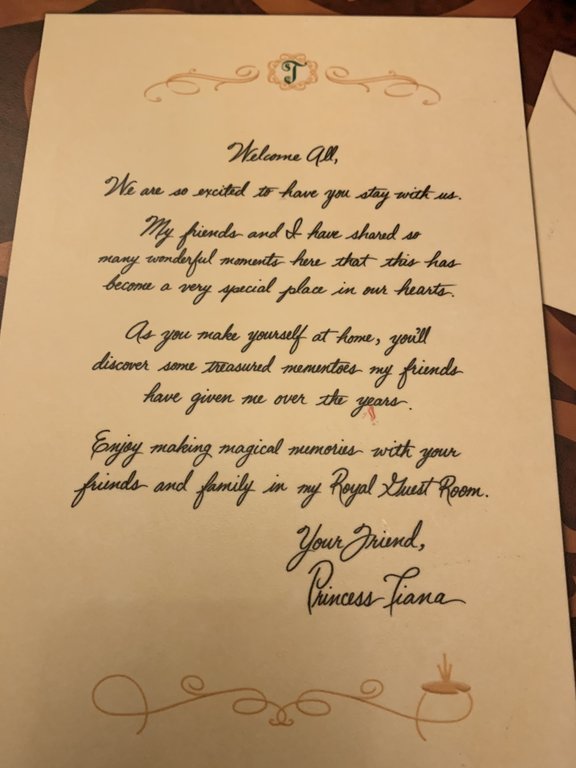 T
Welcome All,
We are so excited to have you stay with us.
My friends and I have shared so
many wonderful moments here that this has
become a very special place in our hearts.
As you make yourself at home, you'll
discover some treasured mementoes my friends
have given me over the years.
Enjoy making magical memories with your
friends and family in my Royal Guest Room.
Your Friend,
Princess Tiana